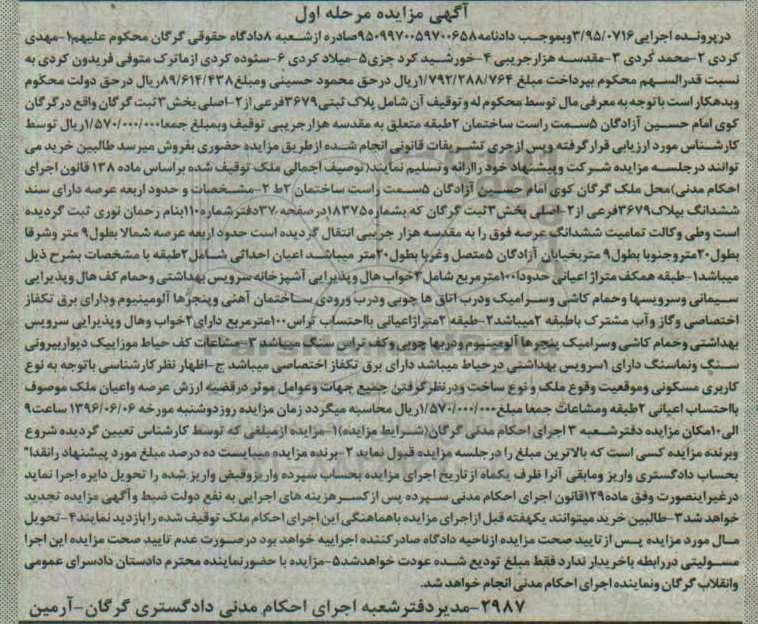 آگهی مزایده مرحله اول
درپرونده اجرایی۳/۹۵/۰۷۱۶وبموجب دادنامه۹۵۰۹۹۷۰۰۵۹۷۰۰۶۵۸صادره ازشعبه ۸دادگاه حقوقی گرگان محکوم علیهم۱-مهدی
کردی ۲-محمد کُردی ۳-مقدسه هزارجریبی ۴-خورشید کرد جزی۵-میلاد کردی ۶-ستوده کردی ازماترک متوفی فریدون کردی به
نسبت قدرالسهم محکوم بپرداخت مبلغ ۱/۷۹۲/۲۸۸/۷۶۴ ریال درحق محمود حسینی ومبلغ۸۹/۶۱۴/۴۳۸ریال درحق دولت محکوم
وبدهکار است باتوجه به معرفی مال توسط محکوم له وتوقیف آن شامل پلاک ثبتی۳۶۷۹فرعی از۲-اصلی بخش۳ثبت گرگان واقع درگرگان
کوی امام حسین آزادگان ۵سمت راست ساختمان ۲طبقه متعلق به مقدسه هزارجریبی توقیف وبمبلغ جمعا۱/۵۷۰/۰۰۰/۰۰۰ریال توسط
کارشناس مورد ارزیابی قرارگرفته وپس ازجری تشریفات قانونی انجام شده ازطریق مزایده حضوری بفروش میرسد طالبین خرید می
توانند درجلسه مزایده شرکت وپیشنهاد خود راارائه وتسلیم نمایند(توصیف اجمالی ملک توقیف شده براساس ماده ۱۳۸ قانون اجرای
احکام مدنی)محل ملک گرگان کوی امام حسین آزادگان ۵سمت راست ساختمان ۲ط ۲-مشخصات و حدود اربعه عرصه دارای سند
ششدانگ بپلاک۳۶۷۹فرعی از۲-اصلی بخش۳ثبت گرگان که بشماره۱۸۳۷۵درصفحه۳۷دفترشماره۱۱۰بنام رحمان نوری ثبت گردیده
است وطی وکالت تمامیت ششدانگ عرصه فوق را به مقدسه هزار جریبی انتقال گردیده است حدود اربعه عرصه شمالا بطول۹ متر وشرقا
بطول۲۰متروجنوبا بطول۹ متربخیابان آزادگان ۵متصل وغربا بطول۲۰متر میباشد اعیان احداثی شامل۲طبقه با مشخصات بشرح ذیل
میباشد۱-طبقه همکف متراژاعیانی حدودا۱۰۰مترمربع شامل۲خواب هال وپذیرایی آشپزخانه سرویس بهداشتی وحمام کف هال وپذیرایی
سیمانی وسرویسها وحمام کاشی وسرامیک ودرب اتاق ها چوبی ودرب ورودی ساختمان آهنی وپنجرها آلومینیوم ودارای برق تکفاز
اختصاصی وگاز وآب مشترک باطبقه ۲میباشد۲-طبقه ۲متراژاعیانی بااحتساب تراس۱۰۰مترمربع دارای۲خواب وهال وپذیرایی سرویس
بهداشتی وحمام کاشی وسرامیک پنجرها آلومینیوم ودربها چوبی وکف تراس سنگ میباشد ۳-مشاعات کف حیاط موزاییک دیواربیرونی
سنگ ونماسنگ دارای ۱سرویس بهداشتی درحیاط میباشد دارای برق تکفاز اختصاصی میباشد ج-اظهار نظرکارشناسی باتوجه به نوع
کاربری مسکونی وموقعیت وقوع ملک و نوع ساخت ودرنظرگرفتن جمیع جهات وعوامل موثر درقضیه ارزش عرصه واعیان ملک موصوف
بااحتساب اعیانی ۲طبقه ومشاعات جمعا مبلغ۱/۵۷۰/۰۰۰/۰۰۰ریال محاسبه میگردد زمان مزایده روزدوشنبه مورخه ۱۳۹۶/۰۶/۰۶ ساعت۹
الی۱۰مکان مزایده دفترشعبه ۳ اجرای احکام مدنی گرگان(شرایط مزایده)۱-مزایده ازمبلغی که توسط کارشناس تعیین گردیده شروع
وبرنده مزایده کسی است که بالاترین مبلغ را درجلسه مزایده قبول نماید ۲-برنده مزایده میبایست ده درصد مبلغ مورد پیشنهاد رانقدا"
بحساب دادگستری واریز ومابقی آنرا ظرف یکماه ازتاریخ اجرای مزایده بحساب سپرده واریزوقبض واریز شده را تحویل دایره اجرا نماید
درغیراینصورت وفق ماده۱۲۹قانون اجرای احکام مدنی سپرده پس ازکسرهزینه های اجرایی به نفع دولت ضبط وآگهی مزایده تجدید
خواهد شد۳-طالبین خرید میتوانند یکهفته قبل ازاجرای مزایده باهماهنگی این اجرای احکام ملک توقیف شده را بازدید نمایند۴-تحویل
مال مورد مزایده پس از تایید صحت مزایده ازناحیه دادگاه صادرکننده اجراییه خواهد بود درصورت عدم تایید صحت مزایده این اجرا
مسولیتی دررابطه باخریدار ندارد فقط مبلغ تودیع شده عودت خواهدشد۵-مزایده با حضورنماینده محترم دادستان دادسرای عمومی
وانقلاب گرگان ونماینده اجرای احکام مدنی انجام خواهد شد.
۲۹۸۷-مدیردفترشعبه اجرای احکام مدنی دادگستری گرگان-آرمین